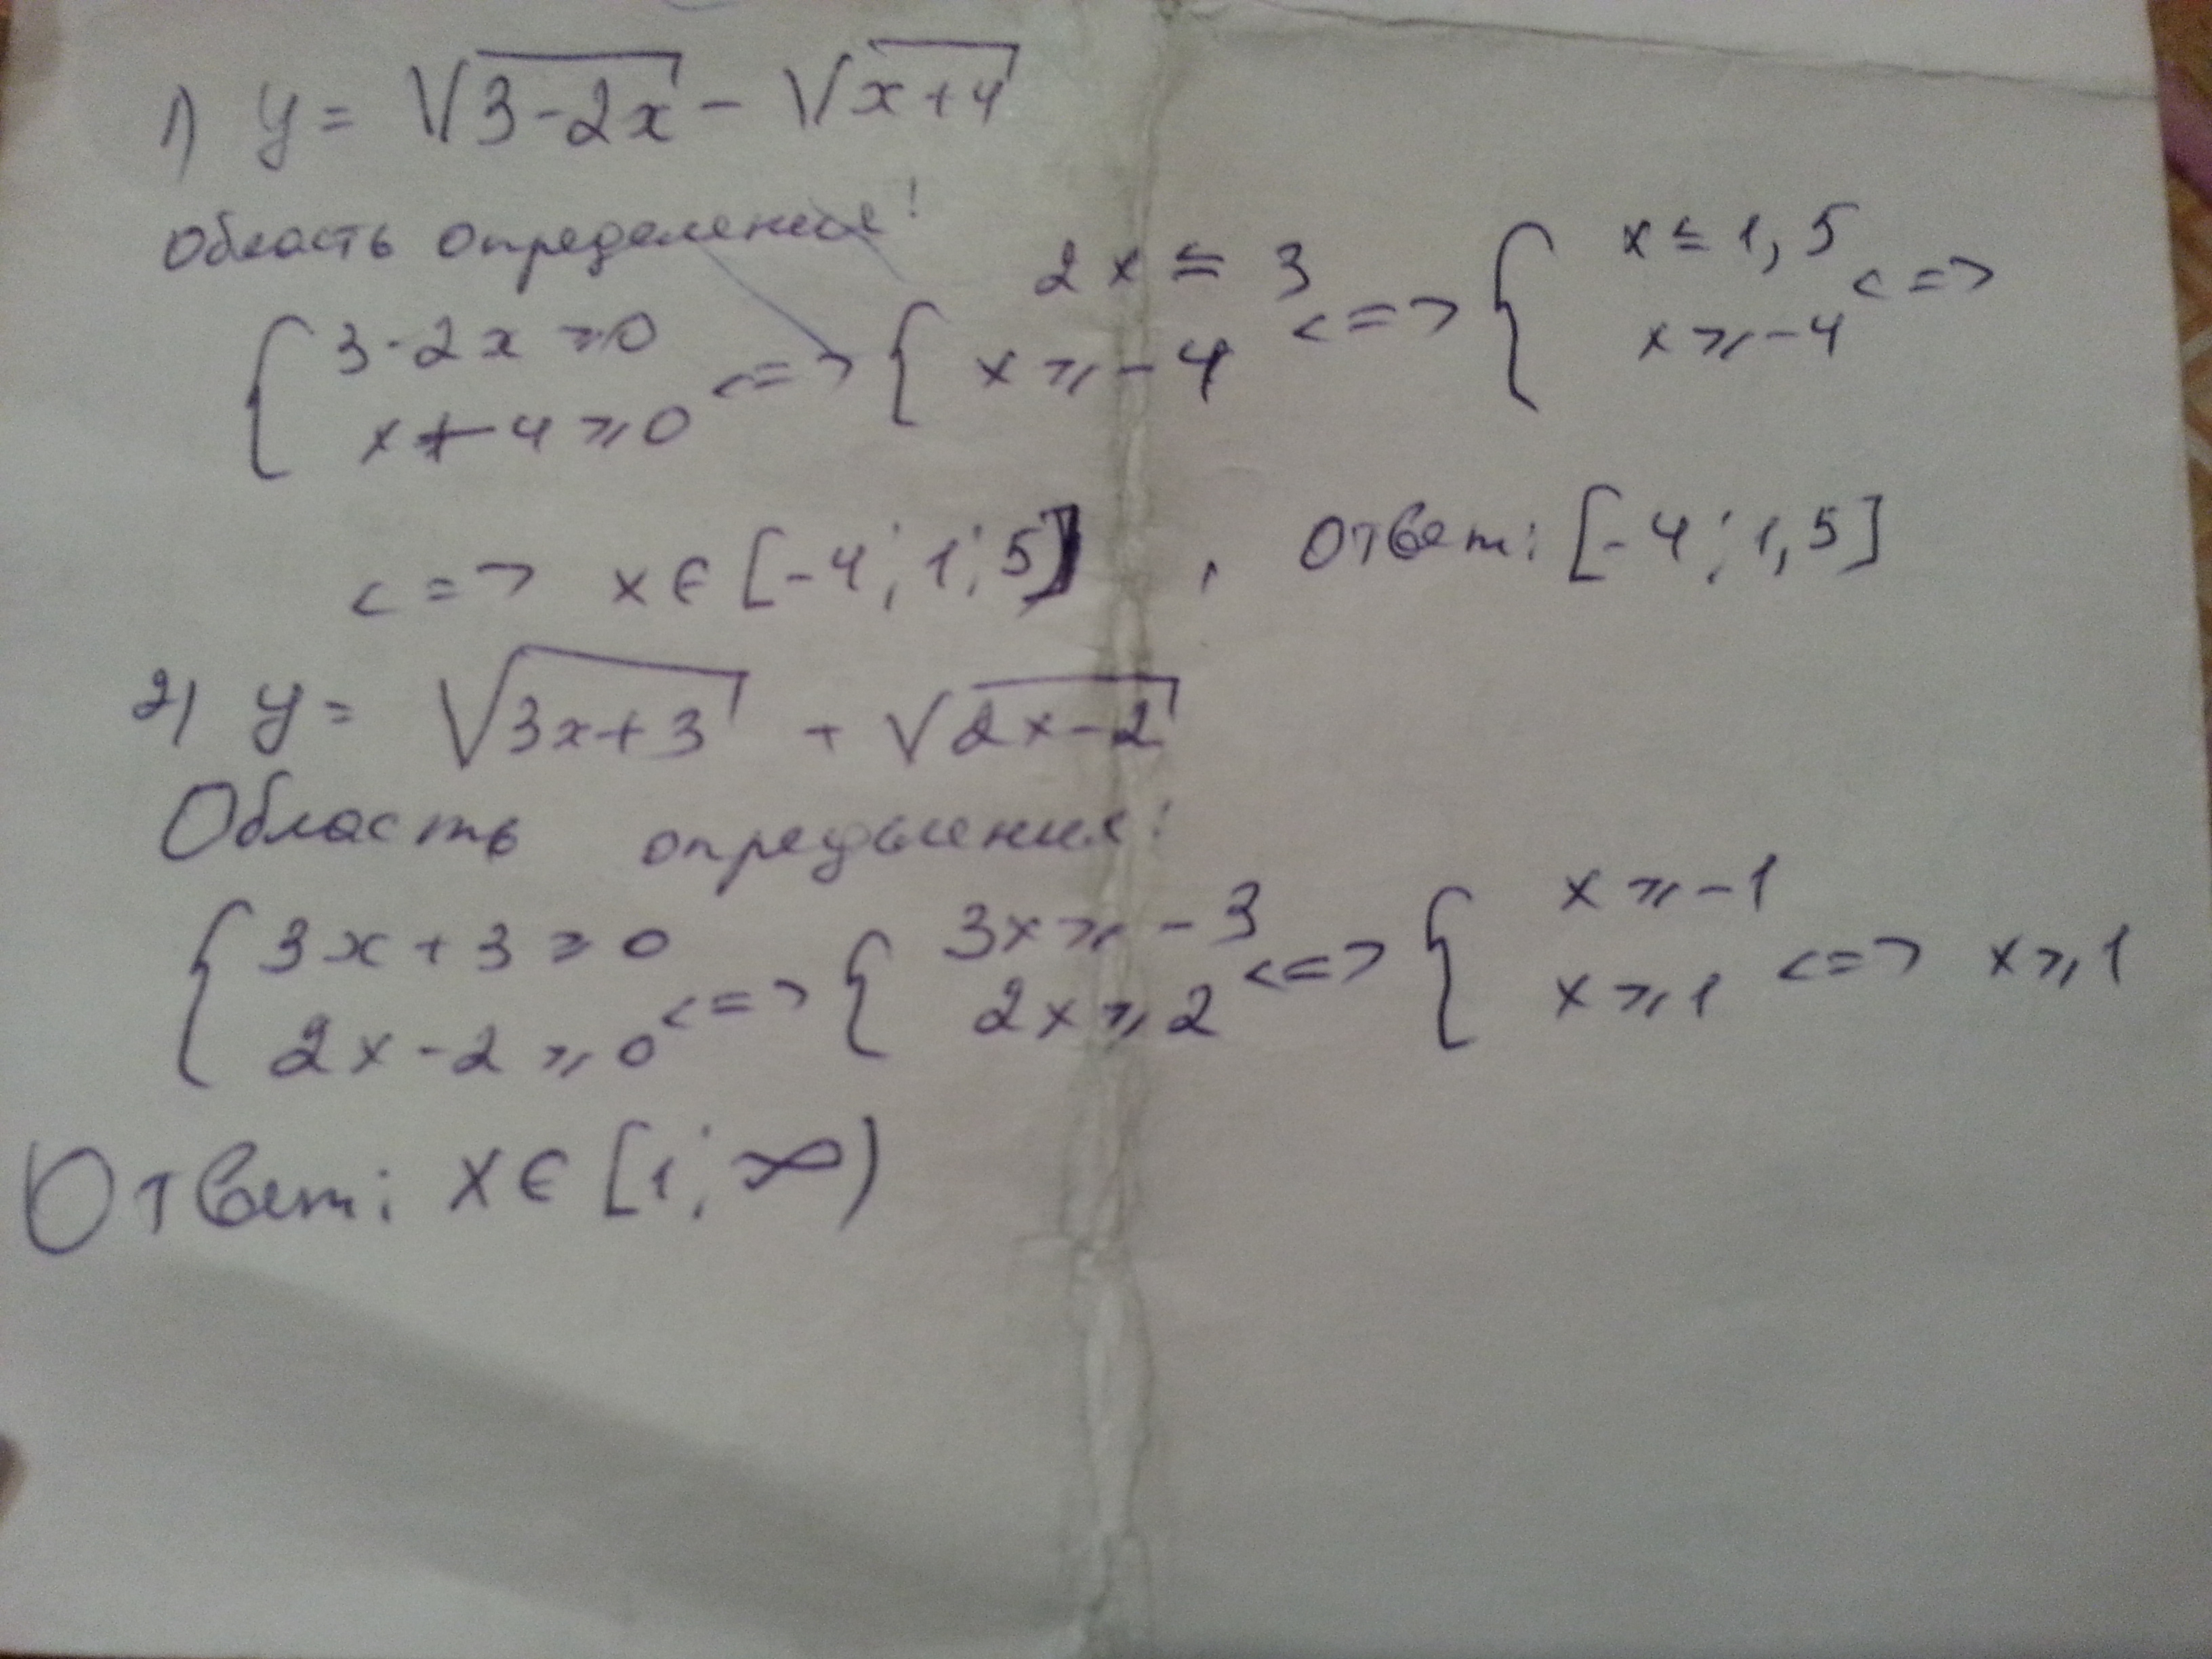 1) y = √3-2x - √x+4
Область определения:
{ 3-2x ≥ 0 <=> { 2x ≤ 3 <=> { x ≤ 1,5 <=>
x+4 ≥ 0 x ≥ -4 x ≥ -4
<=> x ∈ [-4; 1; 5] , Ответ: [-4; 1,5]
2) y = √3x+3 + √2x-2
Область определения:
{ 3x+3 ≥ 0 <=> { 3x ≥ -3 <=> { x ≥ -1 <=> x ≥ 1
2x-2 ≥ 0 2x ≥ 2 x ≥ 1
Ответ: x ∈ [1; ∞)